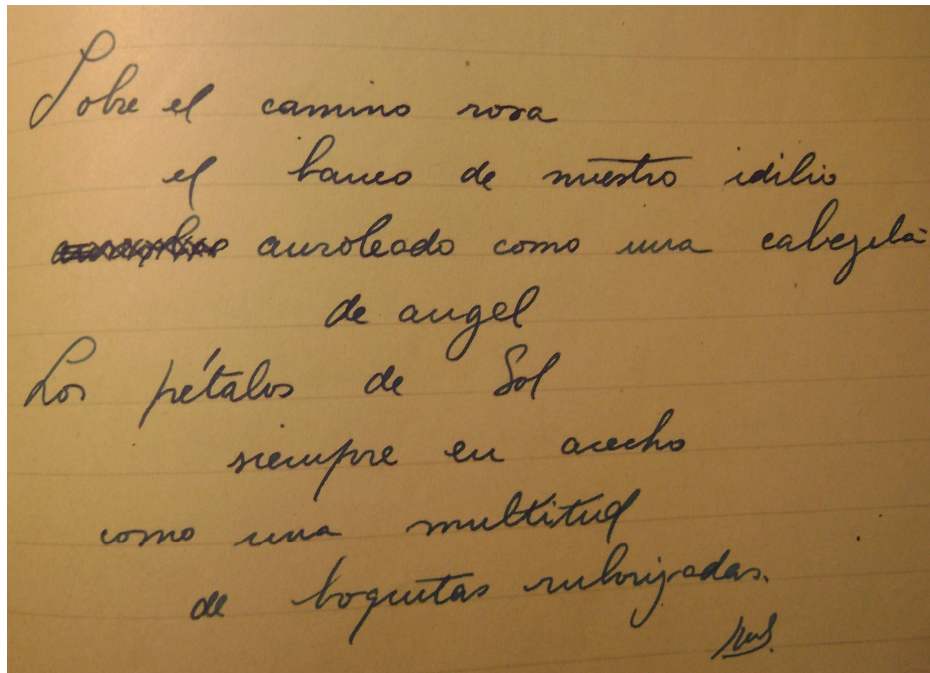 Sobre el camino rosa
el banco de nuestro idilio
auroleado como una cabezita
de angel
Los pétalos de Sol
siempre en acecho
como una multitud
de boquitas ruborizadas.